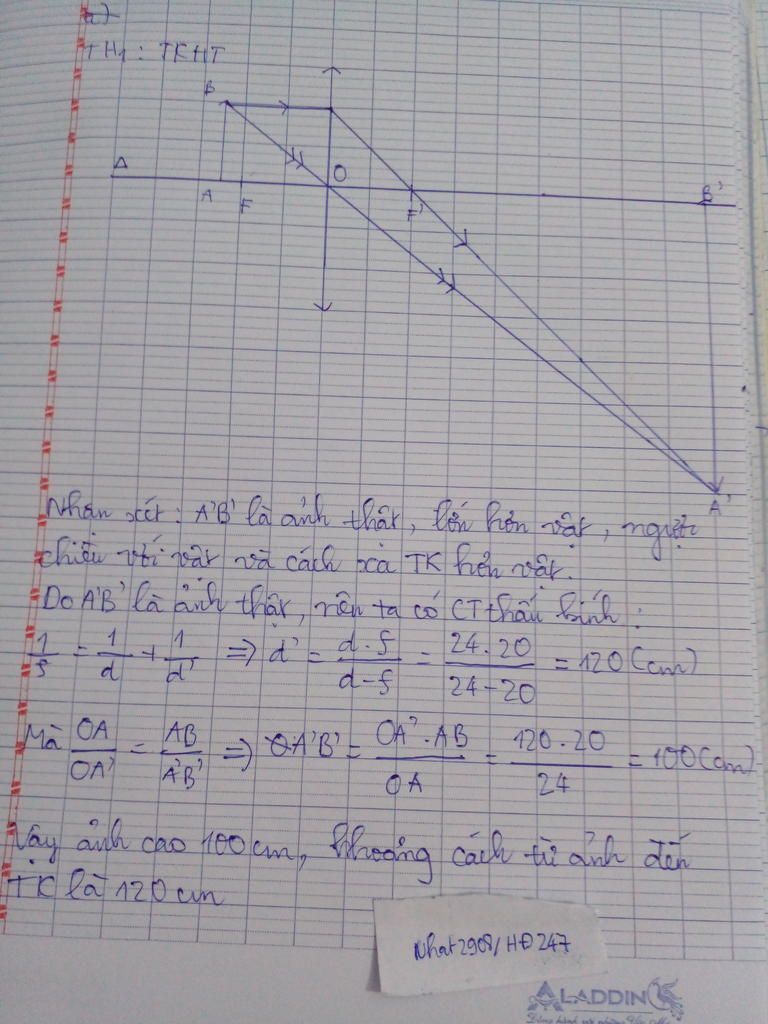 a)
TH1: TKHT
B
Δ
O
B'
A
F
F'
A'
Nhận xét: A'B' là ảnh thật, lớn hơn vật, ngược
chiều với vật và cách xa TK hơn vật.
Do A'B' là ảnh thật, nên ta có CT thấu kính:
1/f = 1/d + 1/d' => d' = d.f/d-f = 24.20/24-20 = 120(cm)
Mà OA/OA' = AB/A'B' => A'B' = OA'.AB/OA = 120.20/24 = 100(cm)
Vậy ảnh cao 100cm, khoảng cách từ ảnh đến
TK là 120cm
Nhat2908/HĐ247
ALADDIN